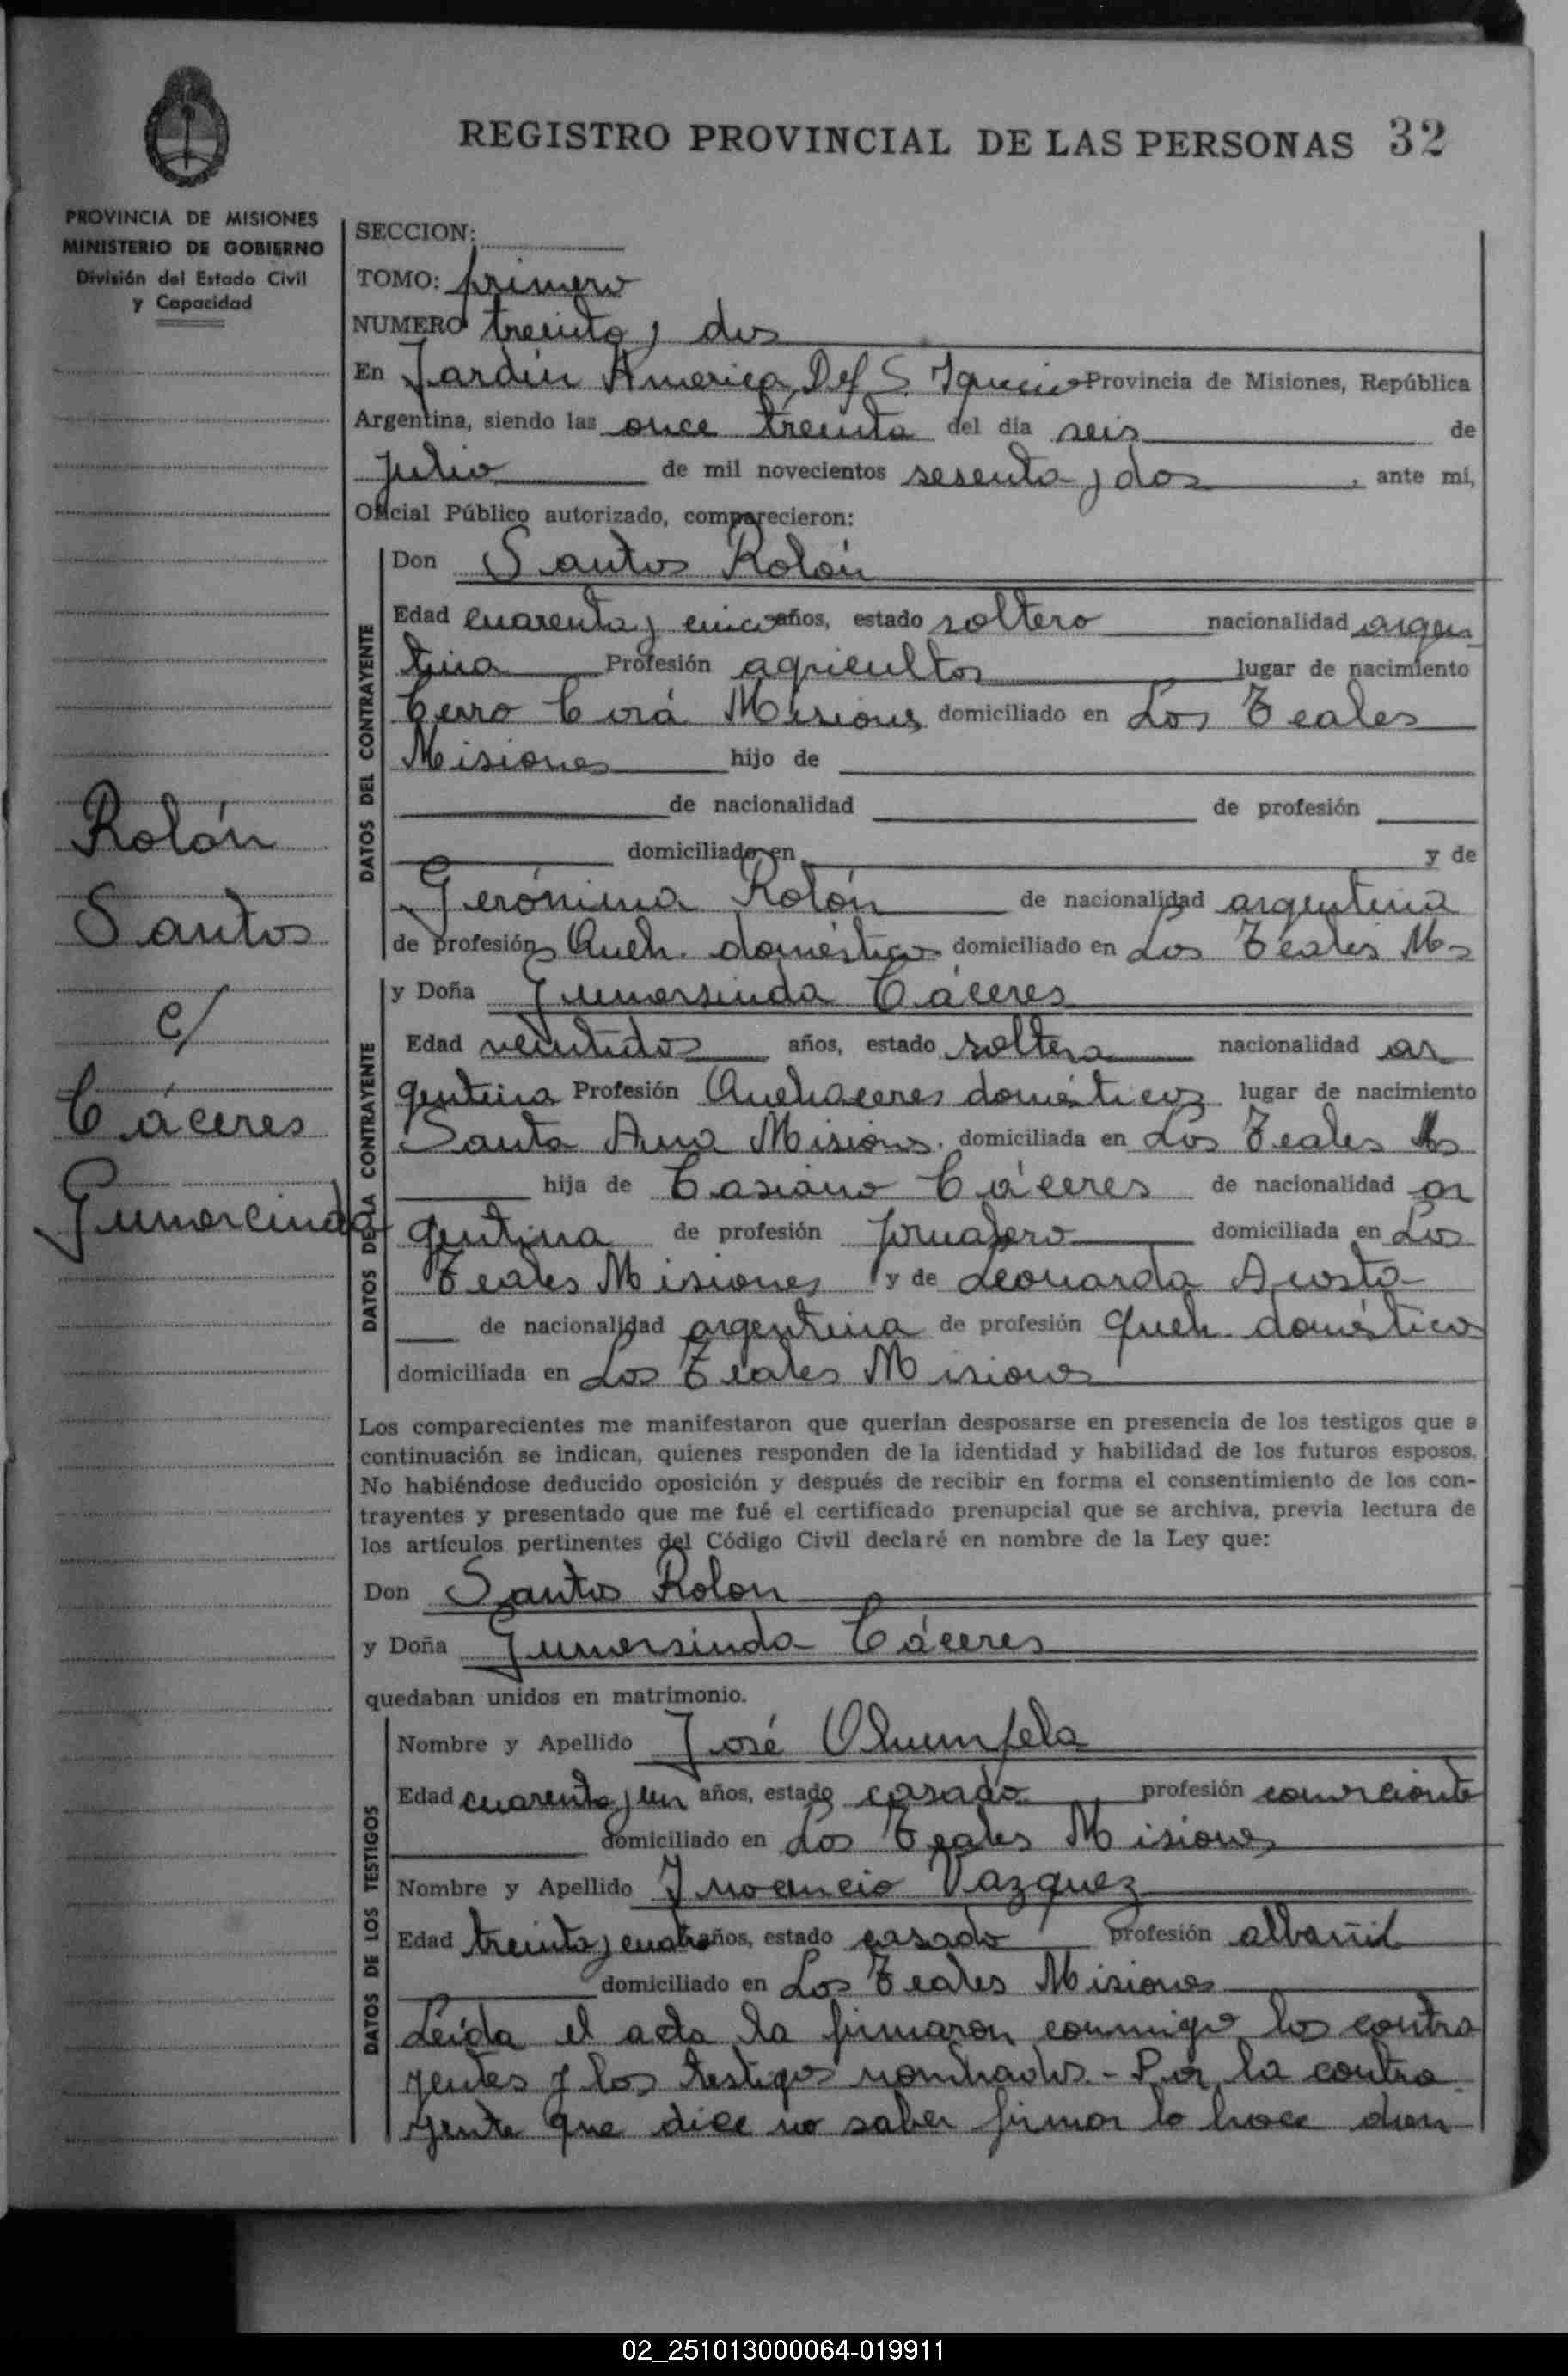 REGISTRO PROVINCIAL DE LAS PERSONAS 32
PROVINCIA DE MISIONES
MINISTERIO DE GOBIERNO
División del Estado Civil
y Capacidad
SECCION:
TOMO: primero
NUMERO treinta y dos
En Jardin America, Def S. Ignacio Provincia de Misiones, República
Argentina, siendo las once treinta del día seis de
julio de mil novecientos sesenta y dos, ante mi,
Oficial Público autorizado, comparecieron:
DATOS DEL CONTRAYENTE
Don Santos Rolón
Edad cuarenta y cinco años, estado soltero nacionalidad argen
tina Profesión agricultor lugar de nacimiento
Cerro Corá Misiones domiciliado en Los Teales
Misiones hijo de
de nacionalidad de profesión
domiciliado en y de
Gerónima Rolón de nacionalidad argentina
de profesión Queh. domésticos domiciliado en Los Teales Ms
Rolón
Santos
c/
Cáceres
Gumercinda
DATOS DE LA CONTRAYENTE
y Doña Gumersinda Cáceres
Edad veintidos años, estado soltera nacionalidad ar
gentina Profesión Quehaceres domésticos lugar de nacimiento
Santa Ana Misiones. domiciliada en Los Teales Ms
hija de Casiano Cáceres de nacionalidad ar
gentina de profesión jornalero domiciliada en Los
Teales Misiones y de Leonarda Acosta
de nacionalidad argentina de profesión queh. domésticos
domiciliada en Los Teales Misiones
Los comparecientes me manifestaron que querían desposarse en presencia de los testigos que a
continuación se indican, quienes responden de la identidad y habilidad de los futuros esposos.
No habiéndose deducido oposición y después de recibir en forma el consentimiento de los con-
trayentes y presentado que me fué el certificado prenupcial que se archiva, previa lectura de
los artículos pertinentes del Código Civil declaré en nombre de la Ley que:
Don Santos Rolon
y Doña Gumersinda Cáceres
quedaban unidos en matrimonio.
DATOS DE LOS TESTIGOS
Nombre y Apellido José
Edad cuarenta y un años, estado casado profesión comerciante
domiciliado en Los Teales Misiones
Nombre y Apellido Inocencio Vazquez
Edad treinta y cuatro años, estado casado profesión albañil
domiciliado en Los Teales Misiones
Leída el acta la firmaron conmigo los contra
yentes y los testigos nombrados.- Por la contra
yente que dice no saber firmar lo hace don
02_251013000064-019911